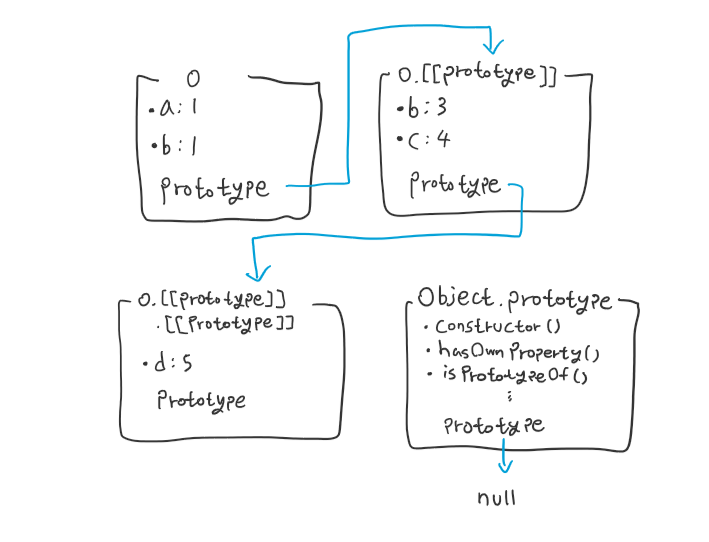 O
• a : 1
• b : 1
Prototype
O.[[prototype]]
• b : 3
• c : 4
Prototype
O.[[prototype]]
.[[Prototype]]
• d : 5
Prototype
Object.prototype
• Constructor()
• hasOwnProperty()
• isPrototypeOf()
⋮
Prototype
null